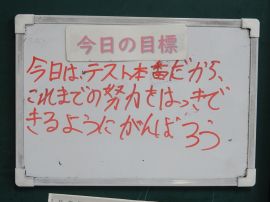 今日の目標
今日は、テスト本番だから、
これまでの努力をはっきで
きるようにがんばろう